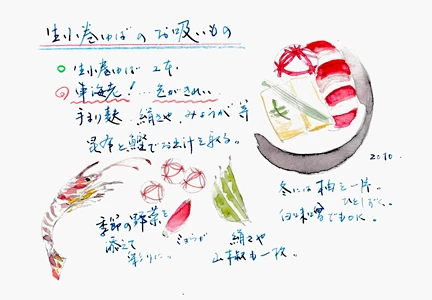 生小巻ゆばのお吸いもの
生小巻ゆば 2本
車海老! 色がきれい
手まり麩 絹さや みょうが 等
昆布と鰹でお出汁を取る。
2010.
冬には柚を一片。
ひとしずく。
白味噌でもOK。
季節の野菜を
添えて
彩りに。
ミョウガ
絹さや
山椒も一枚。